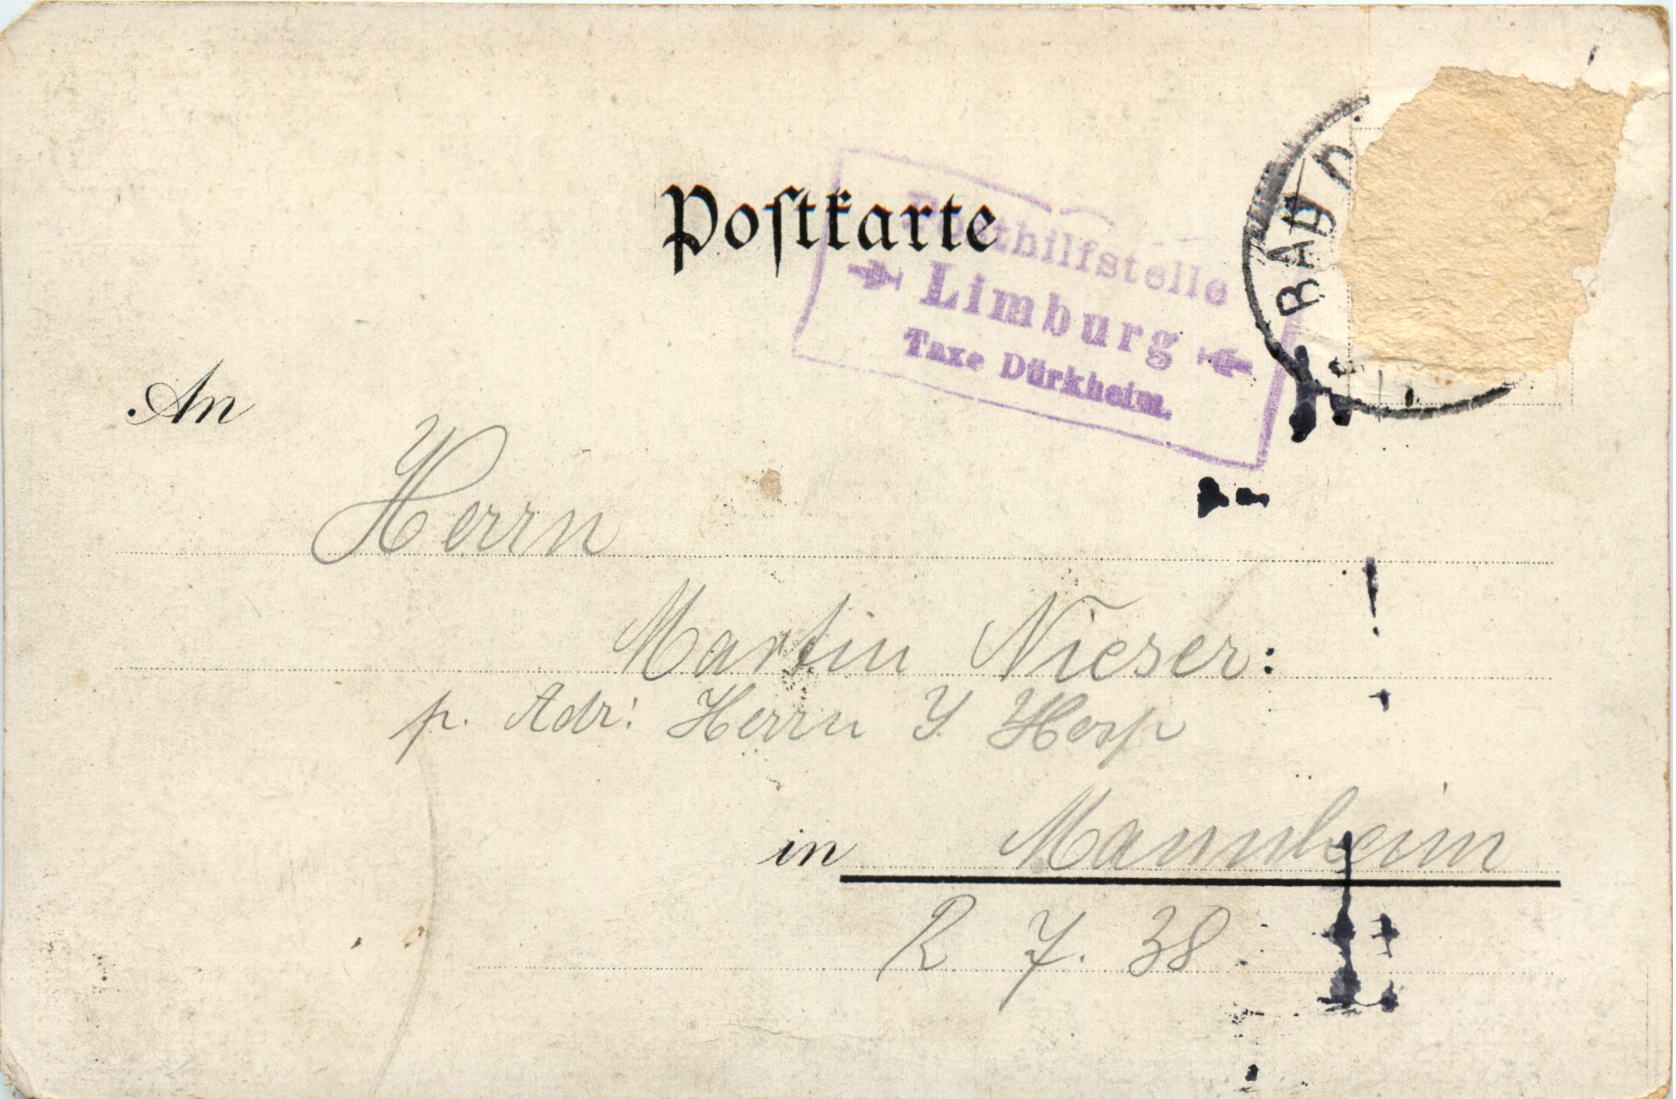 Postkarte
Posthilfstelle
Limburg
Taxe Dürkheim.
BAD D
An
Herrn
Martin Nieser:
p. Adr: Herrn J.
in Mannheim
R 7. 38